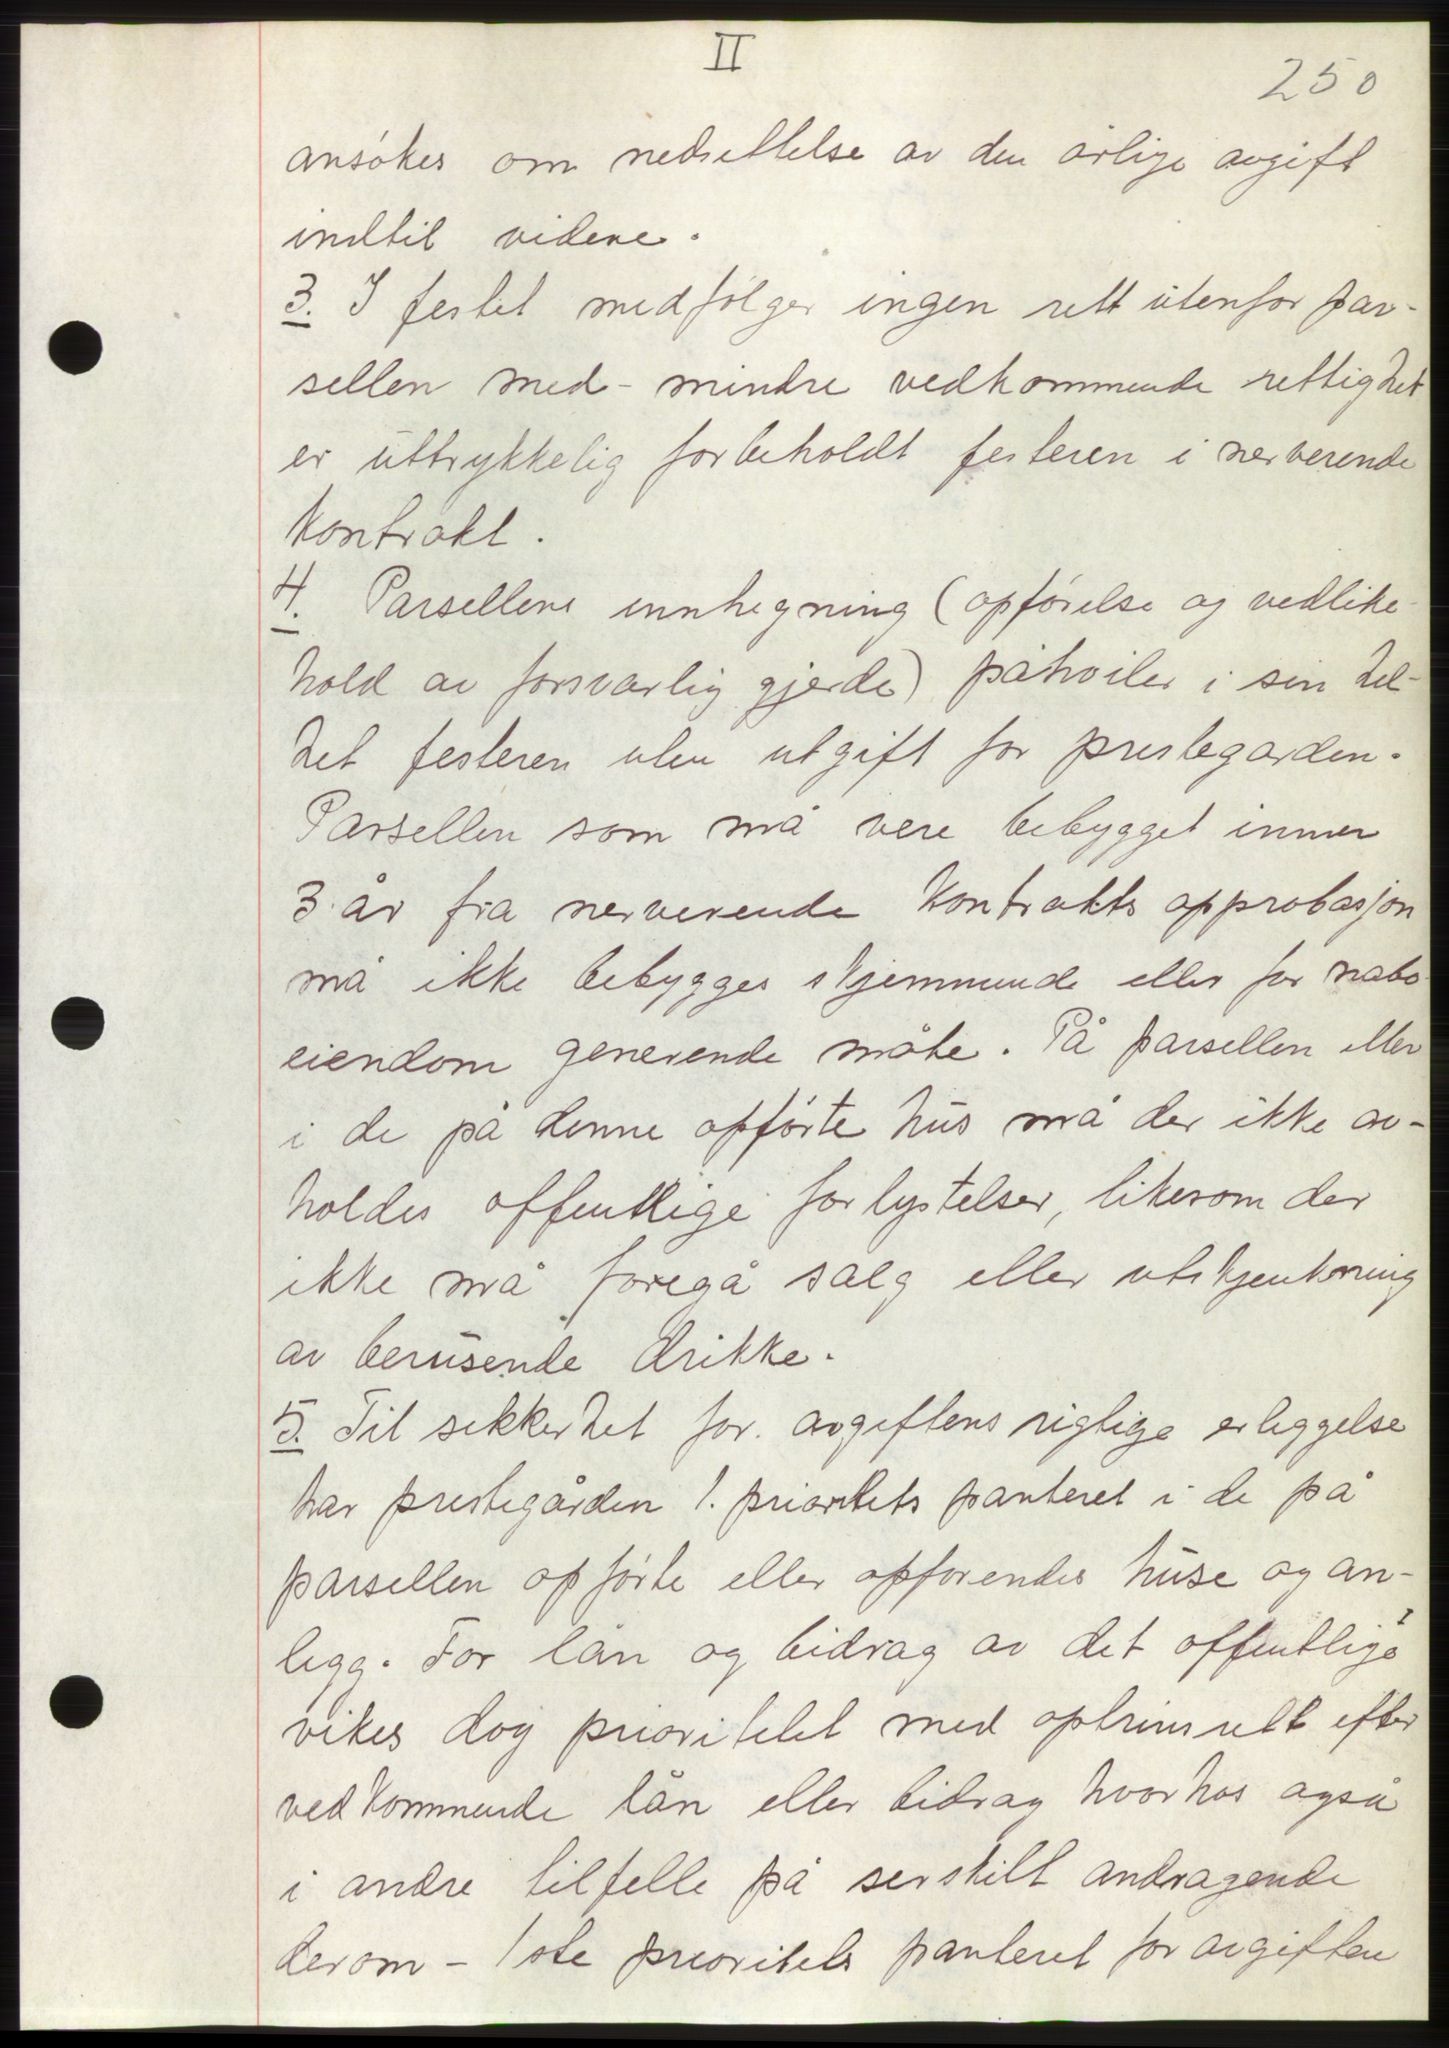 II
250
ansøkes om nedsettelse av den årlige avgift
indtil videre.
3. I festet medfølger ingen rett utenfor par-
sellen med-mindre vedkommende rettighet
er uttrykkelig forbeholdt festeren i nerverende
kontrakt.
4. Parsellens innhegning (opførelse og vedlike-
hold av forsvarlig gjerde) påhviler i sin hel-
het festeren uten utgift for prestegarden.
Parsellen som må vere bebygget innen
3 år fra nerverende kontrakts approbasjon
må ikke bebygges skjemmende eller for nabo-
eiendom generende måte. På parsellen eller
i de på denne opførte hus må der ikke av-
holdes offentlige forlystelser, likesom der
ikke må foregå salg eller utskjenkning
av berusende drikke.
5. Til sikkerhet for avgiftens rigtige erleggelse
har prestegården 1. prioritets panteret i de på
parsellen opførte eller opførendes huse og an-
legg. For lån og bidrag av det offentlige
vikes dog prioritetet med optrinsrett efter
vedkommende lån eller bidrag hvorhos også
i andre tilfelle på serskilt andragende
derom - 1ste prioritets panteret for avgiften